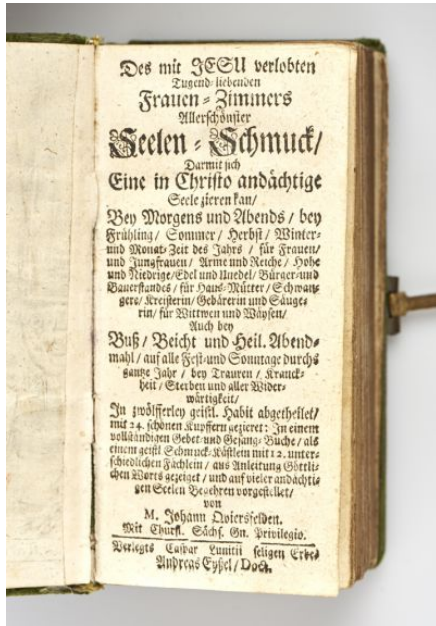 Des mit JESU verlobten
Tugend-liebenden
Frauen-Zimmers
Allerschönster
Seelen-Schmuck/
Darmit sich
Eine in Christo andächtige
Seele zieren kan/
Bey Morgens und Abends / bey
Frühling / Sommer / Herbst / Winter-
und Monat-Zeit des Jahrs / für Frauen/
und Jungfrauen / Arme und Reiche / Hohe
und Niedrige/Edel und Unedel/Bürger-und
Bauerstandes / für Haus-Mütter / Schwan-
gere/ Kreisterin/Gebärerin und Säuge-
rin/ für Wittwen und Wäysen/
Auch bey
Buß / Beicht und Heil. Abend-
mahl / auf alle Fest-und Sonntage durchs
gantze Jahr / bey Trauren / Kranck-
heit / Sterben und aller Wider-
wärtigkeit/
In zwölfferley geistl. Habit abgetheilet/
mit 24. schönen Kupffern gezieret: In einem
vollständigen Gebet-und Gesang-Buche/ als
einem geistl Schmuck-Kästlein mit 12. unter-
schiedlichen Fächlein / aus Anleitung Göttli-
chen Worts gezeiget / und auf vieler andächti-
gen Seelen Begehren vorgestellet/
von
M. Johann Qviersfelden.
Mit Churfl. Sächs. Gn. Privilegio.
Verlegts Caspar Lunitii seligen Erbe/
Andreas Eyßel/